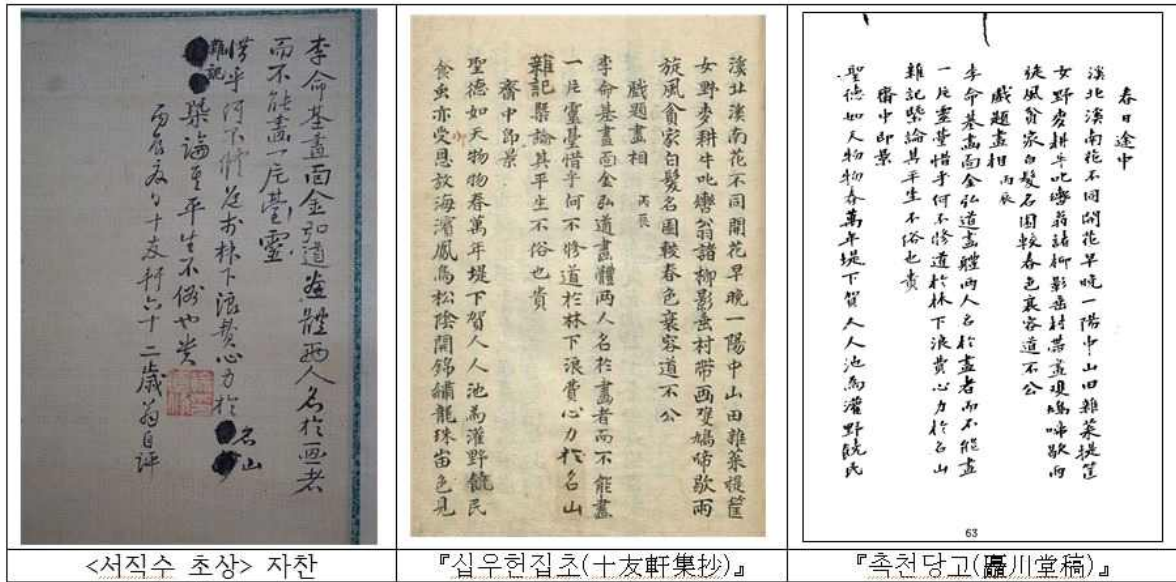 李命基畫面金弘道畫體兩人名於画者
而不能畫一片臺靈
惜乎何不修道於林下浪費心力於名山
雜記
槩論其平生不俗也貴
丙辰夏日十友軒六十二歲翁自評
<서직수 초상> 자찬
溪北溪南花不同開花早晚一陽中山田雜菜提筐
女野麥耕牛叱轡翁諸柳影垂村帶画雙鳩啼歇雨
旋風貧家白髮名園較春色衰容道不公
戲題畫相 丙辰
李命基畫面金弘道畫體兩人名於畵者而不能畫
一片靈臺惜乎何不修道於林下浪費心力於名山
雜記槩論其平生不俗也貴
齋中即景
聖德如天物物春萬年堤下賀人人池爲灌野饒民
食虫亦受恩放海濱鳳鳥松陰開錦繡龍珠宙色見
『십우헌집초(十友軒集抄)』
春日途中
溪北溪南花不同開花早晚一陽中山田雜菜提筐
女野麥耕牛叱轡翁諸柳影垂村帶畫雙鳩啼歇雨
旋風貧家白髮名園較春色衰容道不公
戲題畫相 丙辰
李命基畫面金弘道畫體兩人名於畫者而不能畫
一片靈臺惜乎何不修道於林下浪費心力於名山
雜記槩論其平生不俗也貴
齋中即景
聖德如天物物春萬年堤下賀人人池爲灌野饒民
63
『촉천당고(矗川堂稿)』